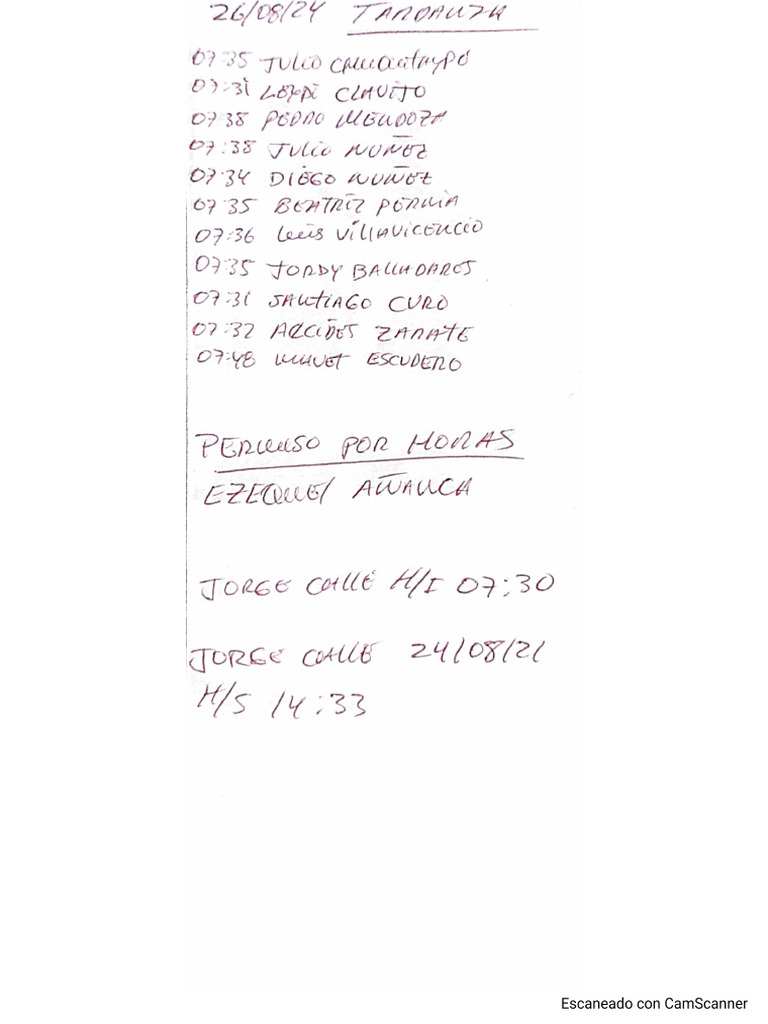 26/08/24 TARDANZA
07:35 JULIO
07:31 CLAVIJO
07:38 PEDRO MENDOZA
07:38 JULIO NUÑEZ
07:34 DIEGO NUÑEZ
07:35 BEATRIZ PERNIA
07:36 LUIS VILLAVICENCIO
07:35 JORDY BALLADARES
07:31 SANTIAGO CURO
07:32 ALCIDES ZARATE
07:48 ESCUDERO
PERMISO POR HORAS
EZEQUIEL AÑANCA
JORGE CALLE H/I 07:30
JORGE CALLE 24/08/21
H/S 14:33
Escaneado con CamScanner